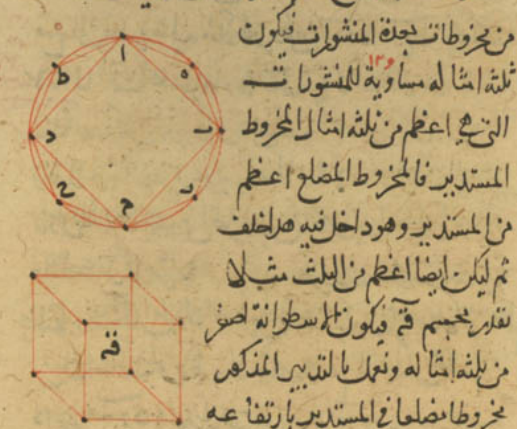 من مخروطات بعدة المنشورات فيكون
ثلثة امثاله مساوية للمنشورات
التى هى اعظم من ثلثة امثال المخروط
المستدير فالمخروط المضلع اعظم
من المستدير وهو داخل فيه هذا خلف
ثم ليكن ايضا اعظم من الثلث مثلا
بقدر مجسم قه فيكون الاسطوانة اصغر
من ثلثة امثاله ونعمل بالتدبير المذكور
مخروطا مضلعا فى المستدير بارتفاعه
ا
ه
ب
ر
ج
ح
د
ط
قه